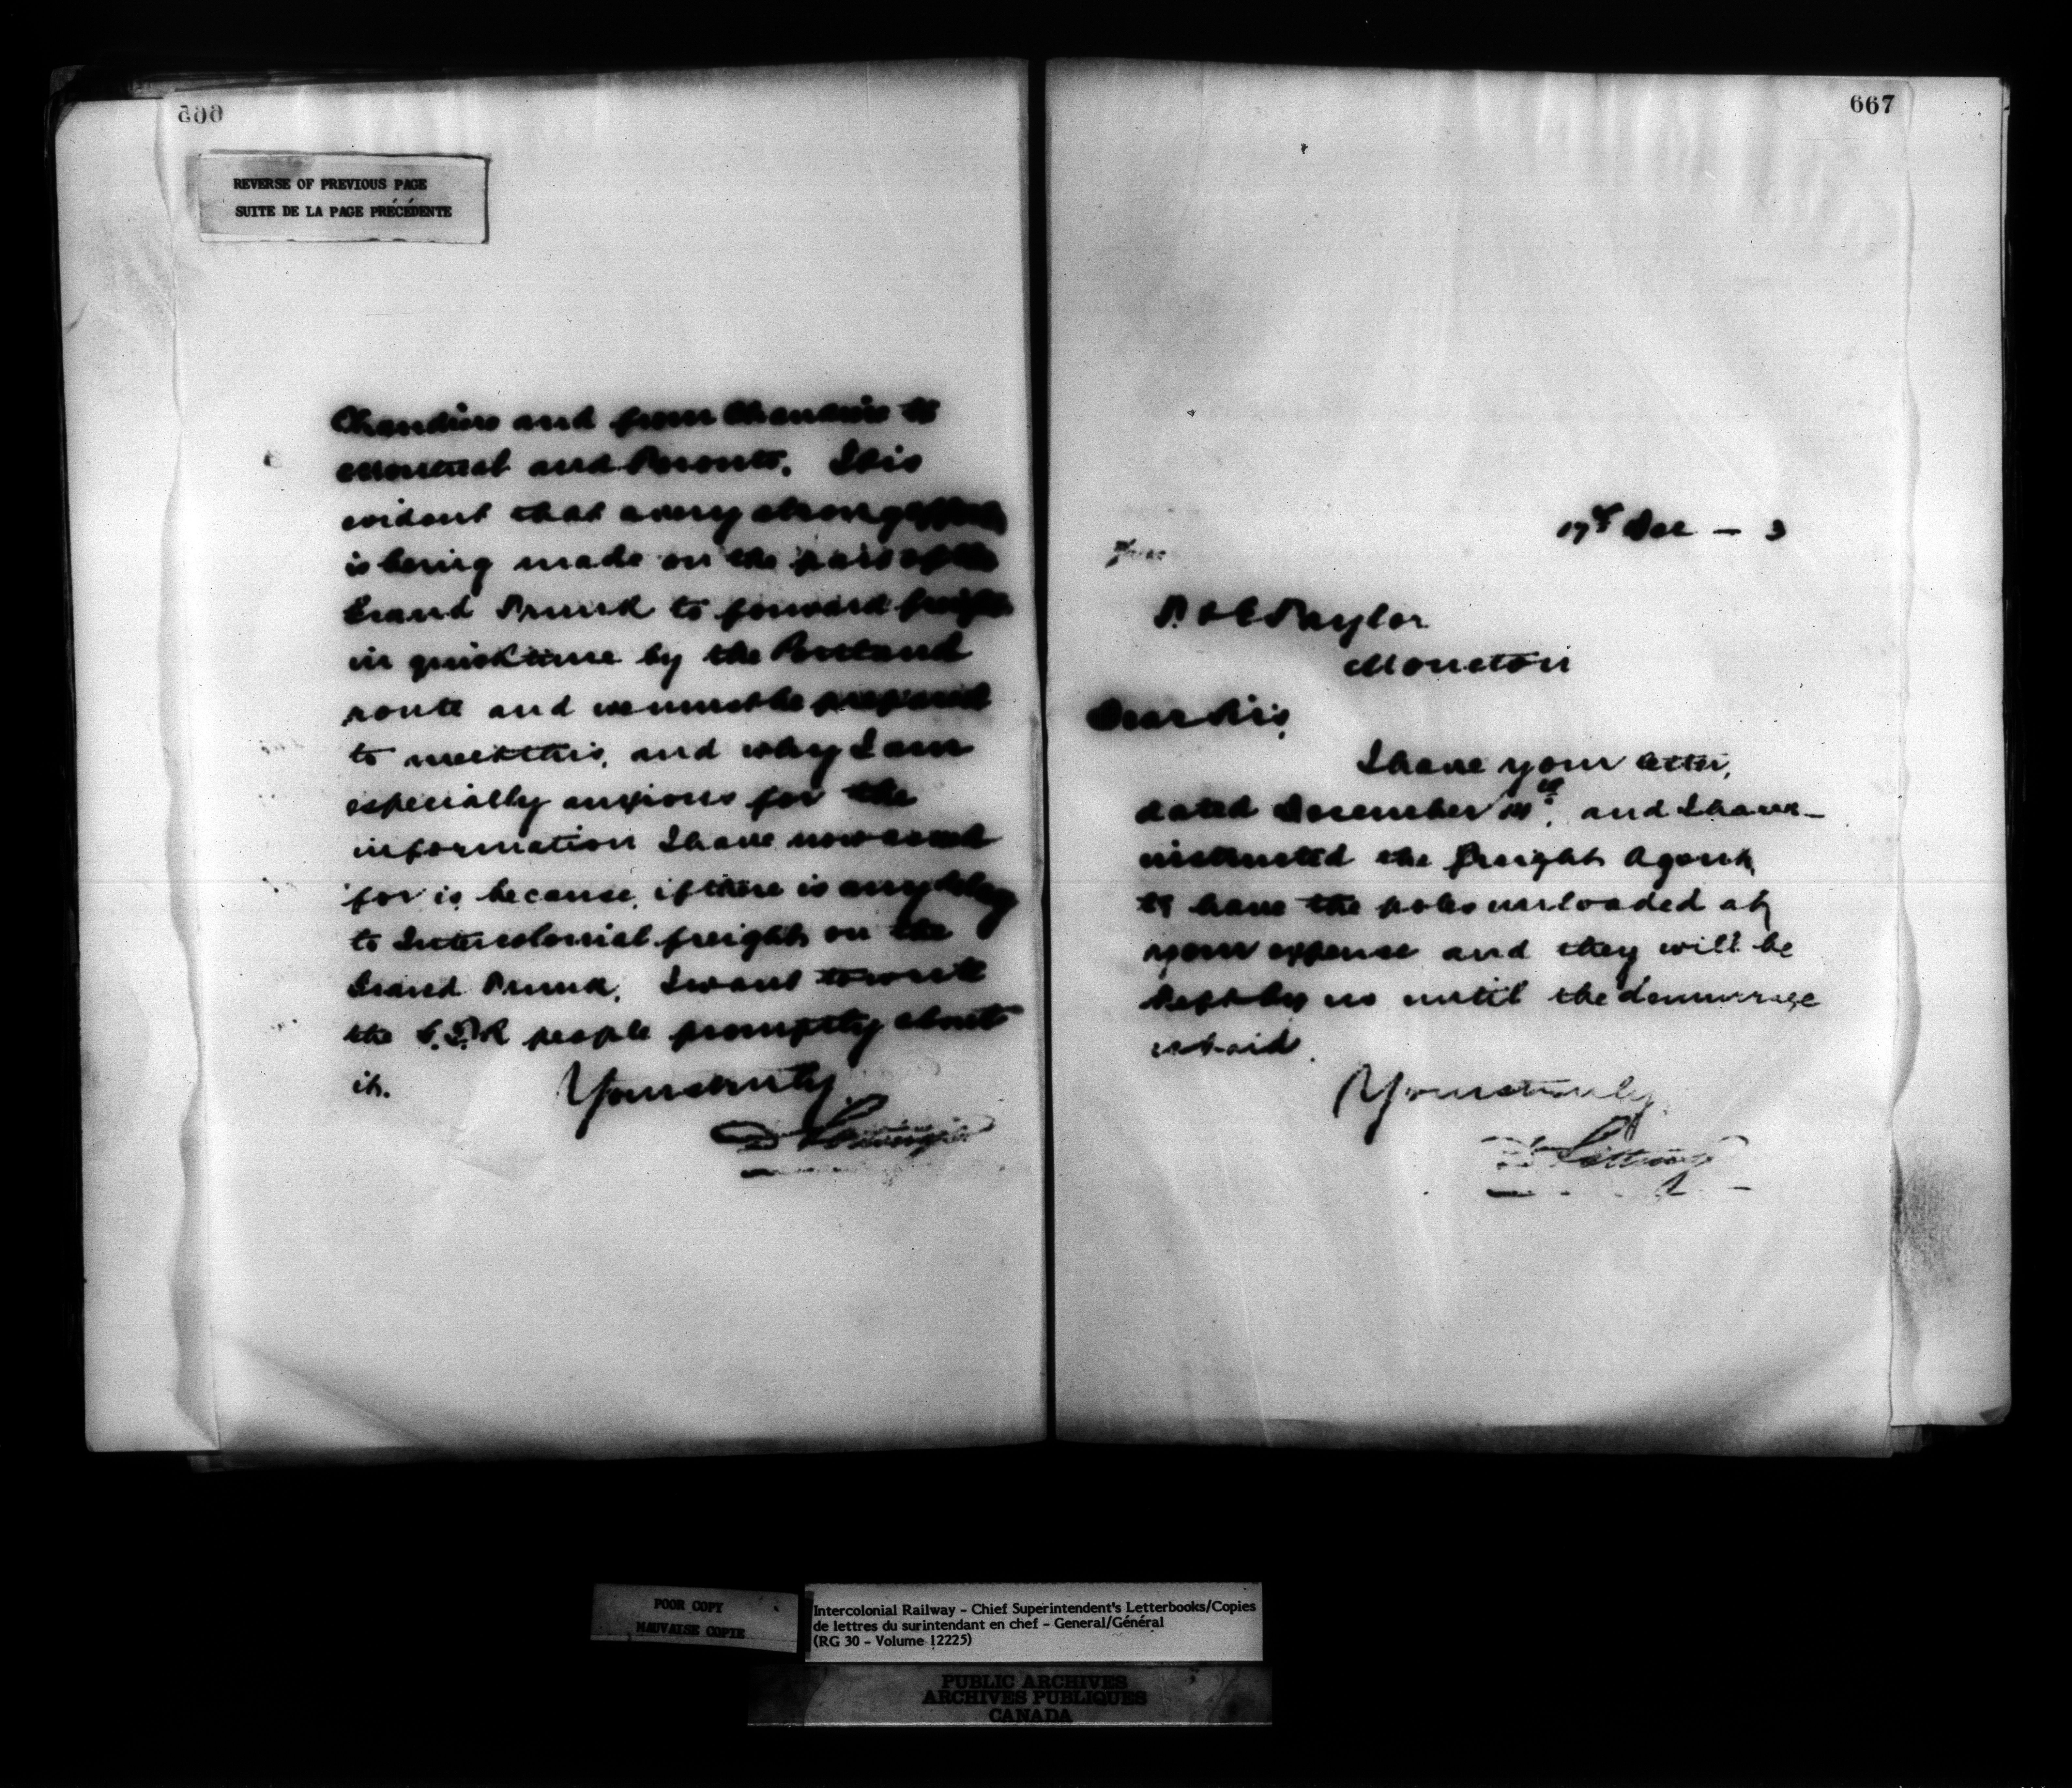 REVERSE OF PREVIOUS PAGE
SUITE DE LA PAGE PRÉCÉDENTE
Chaudiere and from Chaudiere to
Montreal and Toronto. It is
evident that a very strong effort
is being made on the part of the
Grand Trunk to forward freight
in quick time by the Portland
route and we must be prepared
to meet this, and why I am
especially anxious for the
information I have now asked
for is because, if there is any delay
to Intercolonial freight on the
Grand Trunk, I want to write
the G.T.R people promptly about
it.
Yours truly
D Pottinger
667
17th Dec – 3
Taylor
Moncton
Dear Sir,
I have your letter,
dated December and I have
instructed the Freight Agent
to have the poles unloaded at
your expense and they will be
kept by us until the demurrage
is paid.
Yours truly
D Pottinger
POOR COPY
MAUVAISE COPIE
Intercolonial Railway - Chief Superintendent's Letterbooks/Copies
de lettres du surintendant en chef - General/Général
(RG 30 - Volume 12225)
PUBLIC ARCHIVES
ARCHIVES PUBLIQUES
CANADA